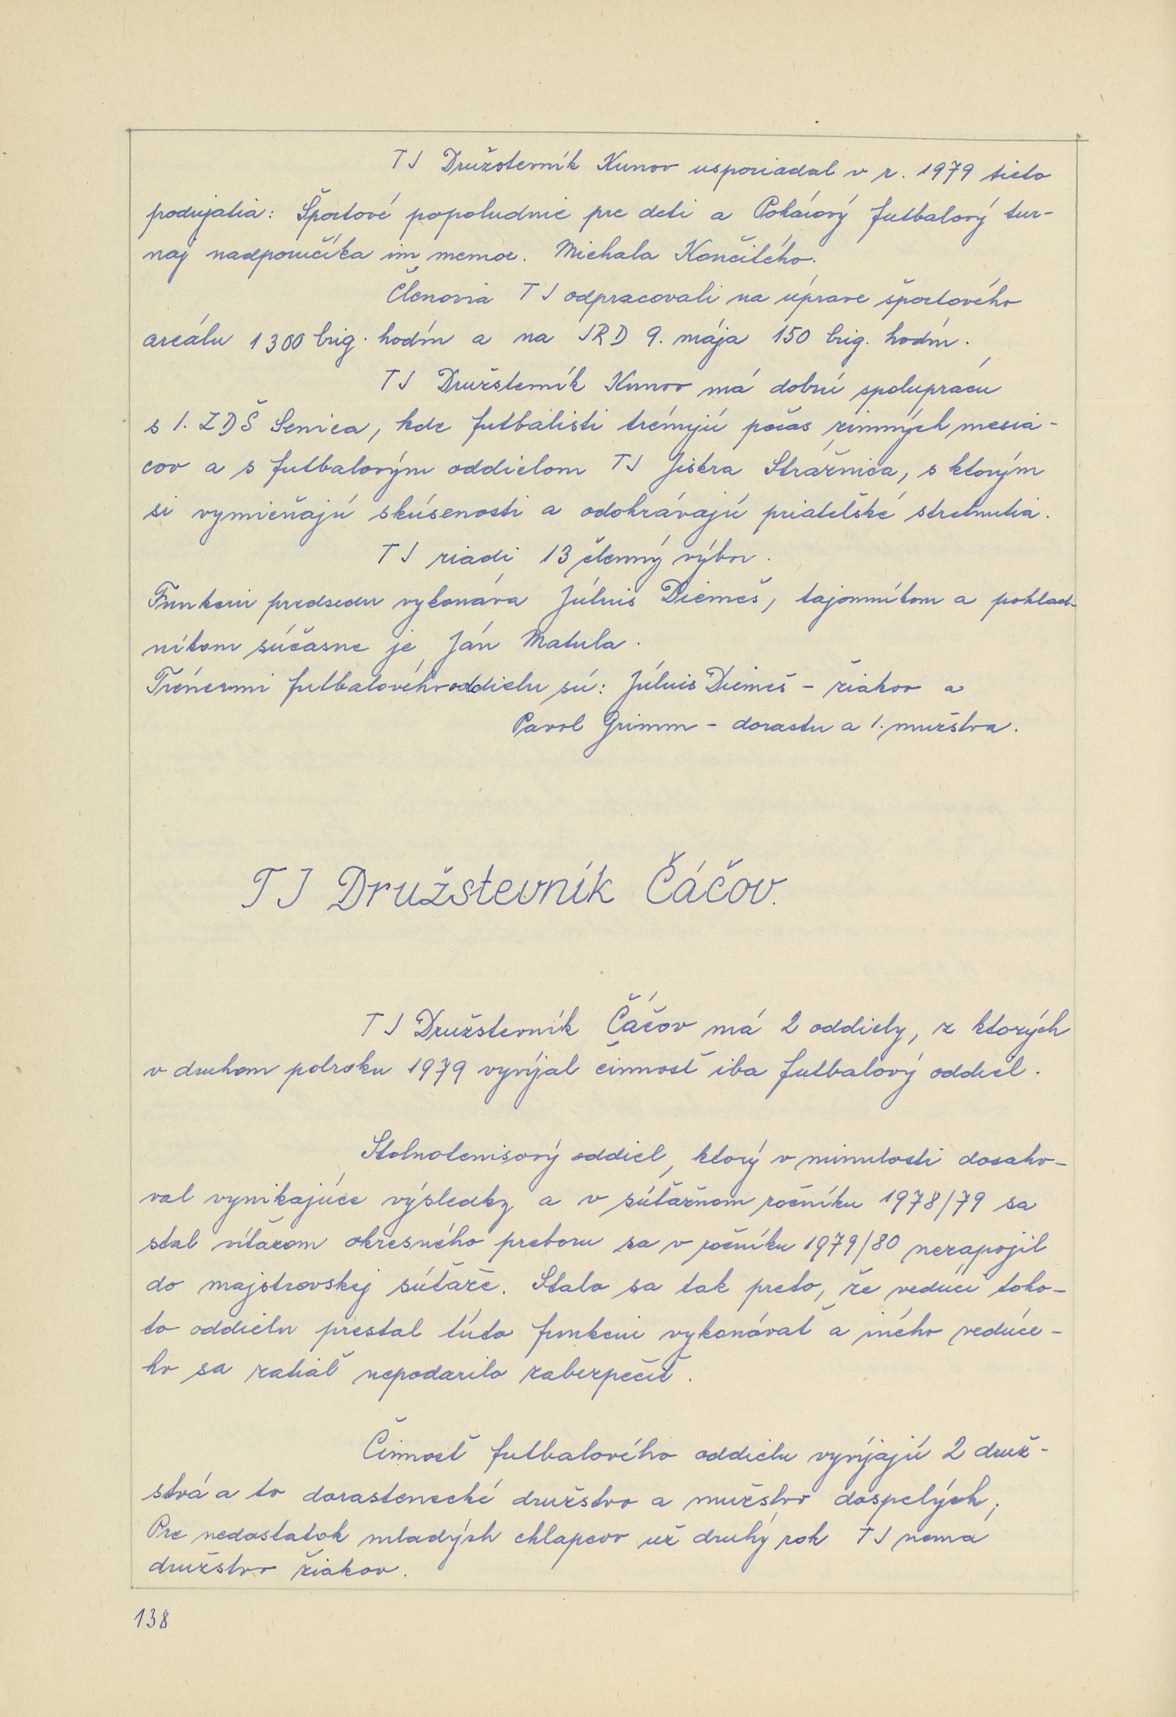 TJ Družstevník Kunov usporiadal v r. 1979 tieto
podujatia: Športové popoludnie pre deti a Pohárový futbalový tur-
naj nadporučíka in memor. Michala Končitého.
Členovia TJ odpracovali na úprave športového
areálu 1300 brig. hodín a na JRD 9. mája 150 brig. hodín.
TJ Družstevník Kunov má dobrú spoluprácu
s 1. ZDŠ Senica, kde futbalisti trénujú počas zimných mesia-
cov a s futbalovým oddielom TJ Jiskra Strážnica, s ktorým
si vymieňajú skúsenosti a odohrávajú priateľské stretnutia.
TJ riadi 13 členný výbor.
Funkciu predsedu vykonáva Július Diemeš, tajomníkom a poklad-
níkom súčasne je Ján Matula.
Trénermi futbalového oddielu sú: Július Diemeš - žiakov a
Pavol Grimm - dorastu a 1. mužstva.
TJ Družstevník Čáčov.
TJ Družstevník Čáčov má 2 oddiely, z ktorých
v druhom polroku 1979 vyvíjal činnosť iba futbalový oddiel.
Stolnotenisový oddiel, ktorý v minulosti dosaho-
val vynikajúce výsledky a v súťažnom ročníku 1978/79 sa
stal víťazom okresného preboru sa v ročníku 1979/80 nezapojil
do majstrovskej súťaže. Stalo sa tak preto, že vedúci toho-
to oddielu prestal túto funkciu vykonávať a iného vedúce-
ho sa zatiaľ nepodarilo zabezpečiť.
Činnosť futbalového oddielu vyvíjajú 2 druž-
stvá a to dorastenecké družstvo a mužstvo dospelých,
Pre nedostatok mladých chlapcov už druhý rok TJ nemá
družstvo žiakov.
138